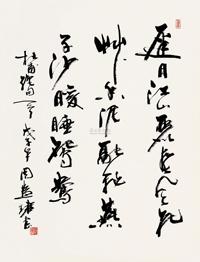 遲日江山麗春風花
艸香泥融飛燕
子沙暖睡鴛鴦
杜甫 戊子年周慧珺書